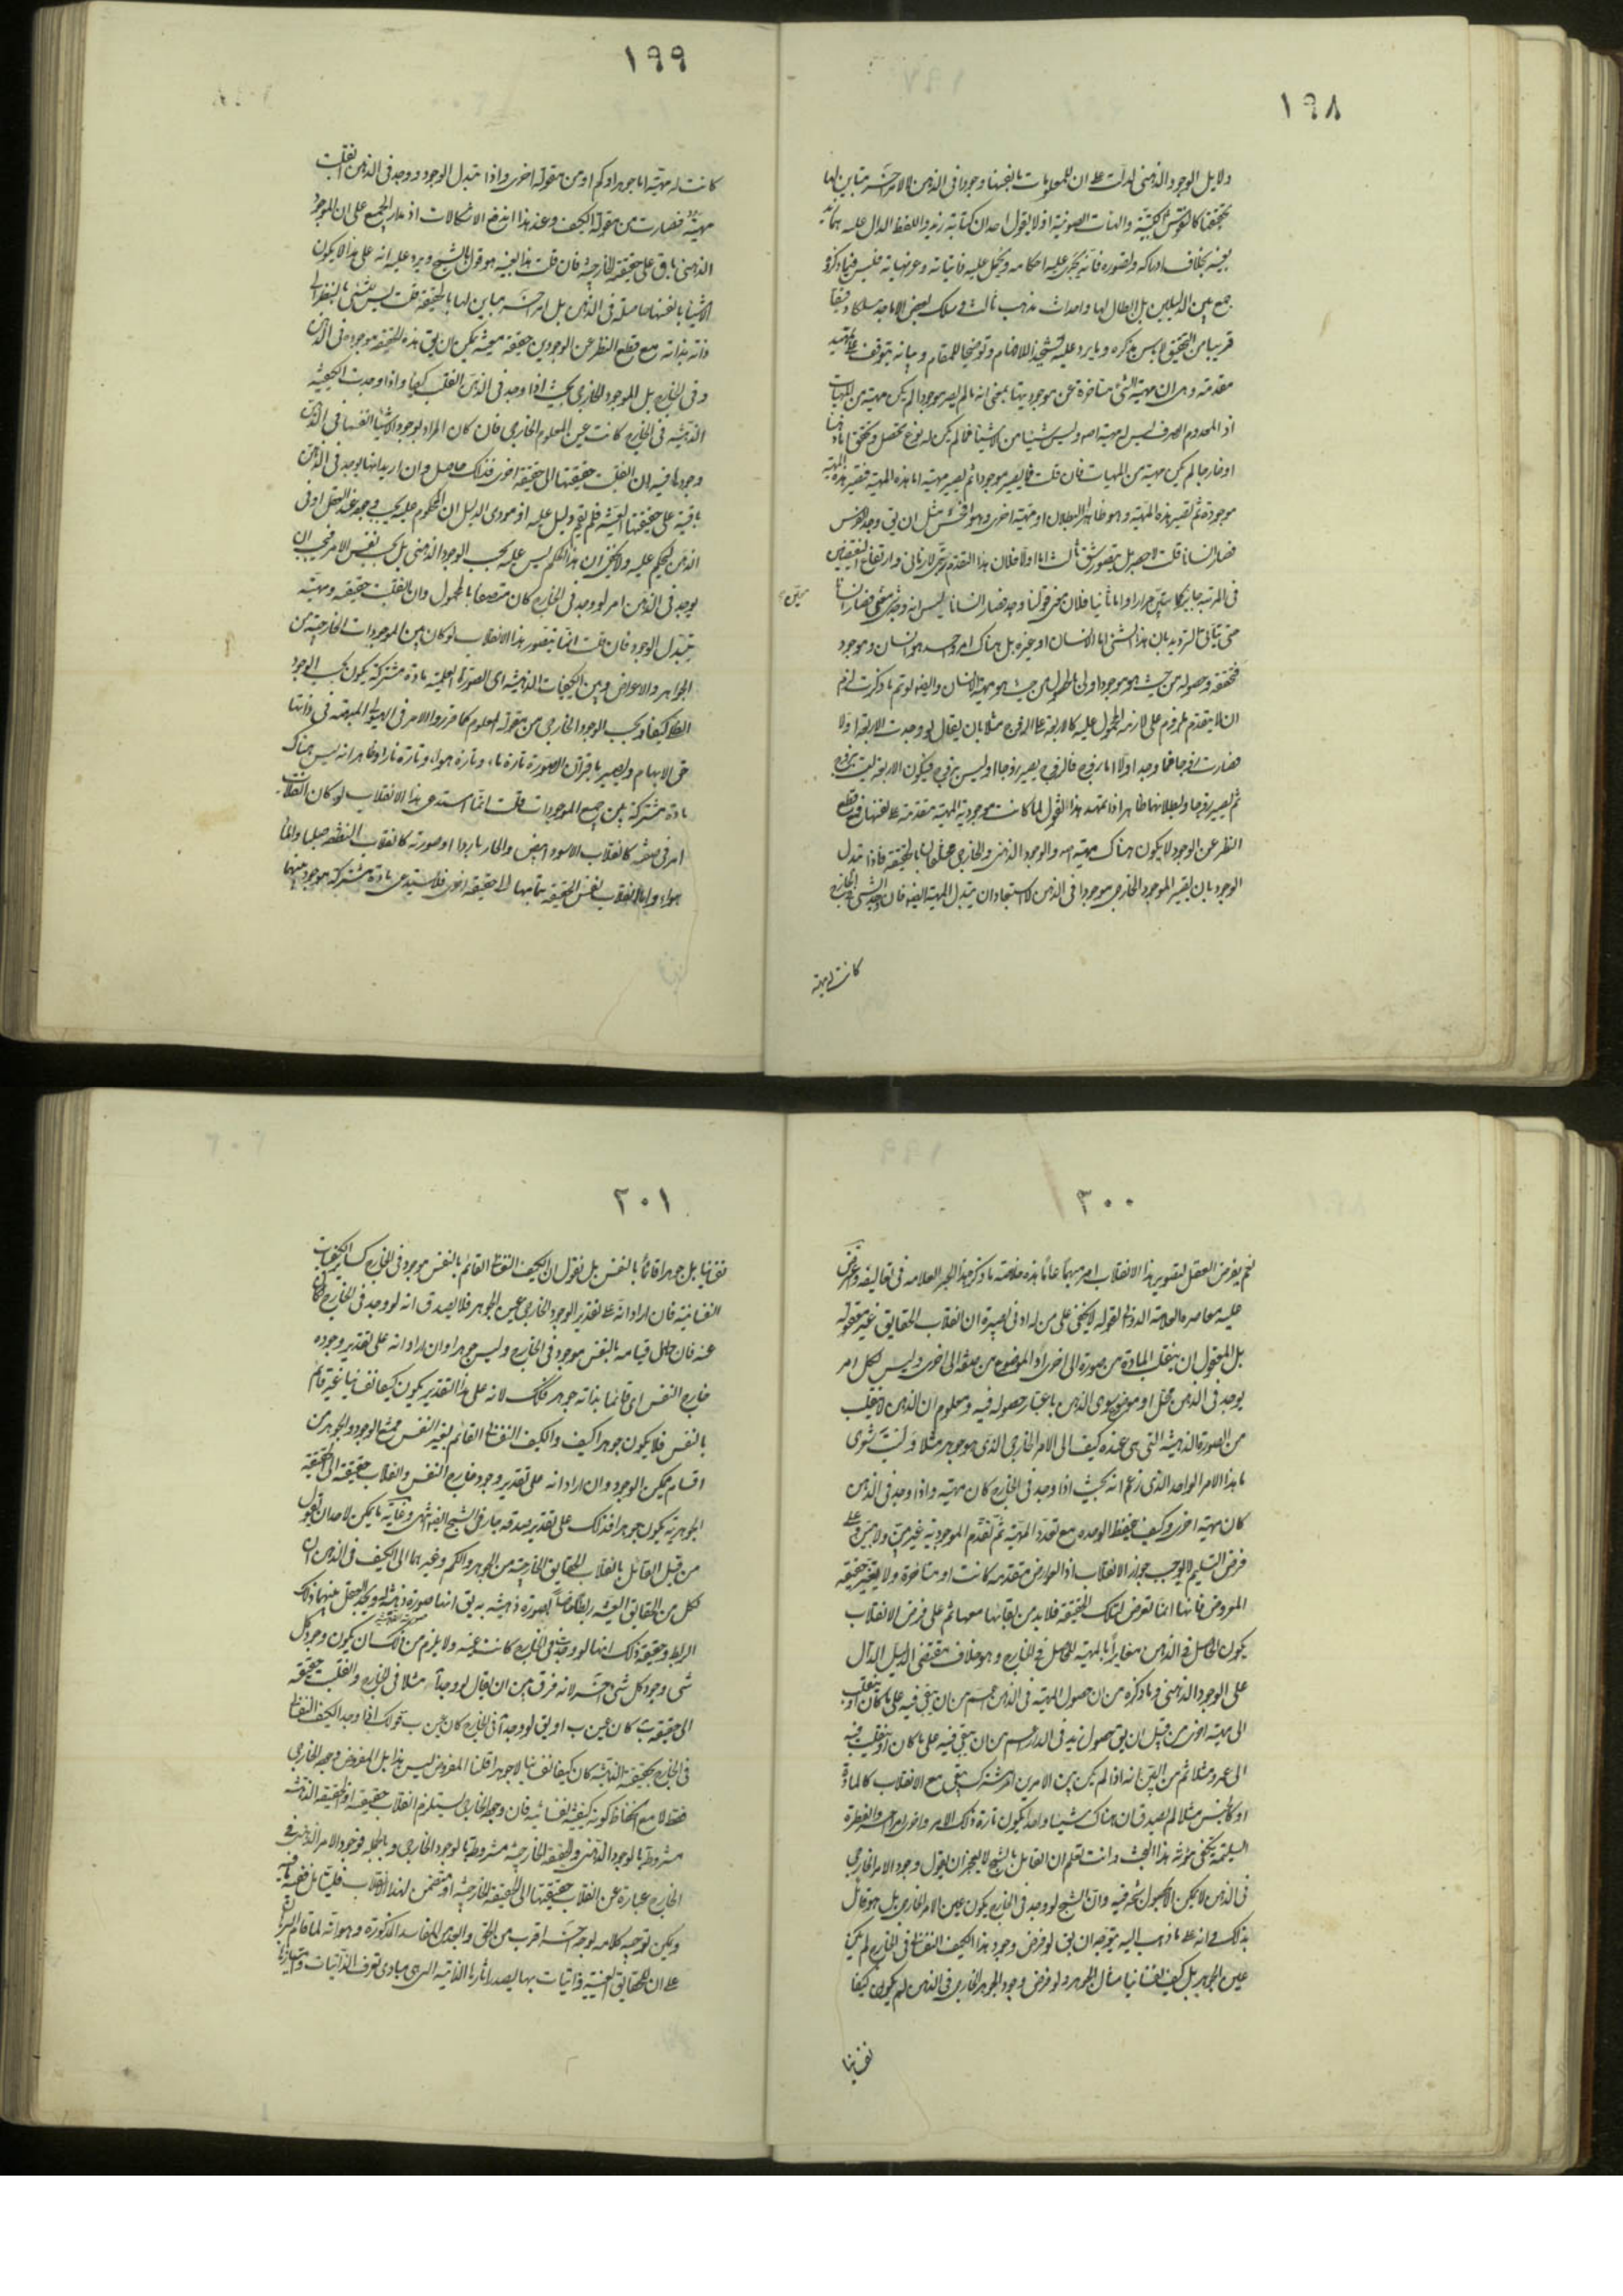 ١٩٨
ودلايل الوجود الذهني لو تمت دلت على ان للمعلومات بانفسها وجودا في الذهن لا لامر آخر مباين لها
بحقيقتها كالنقوش الكتبية والهيآت الصوتية اذ لا يقول احد ان كتابة زيد واللفظ الدال عليه هما زيد
بعينه بخلاف ادراكه وتصوره فانه يجرى عليه احكامه ويحمل عليه ذاتياته وعرضياته فليس فيما ذكره
جمع بين الدليلين بل ابطال لها واحداث مذهب ثالث وسلك بعض الاماجد مسلكا دقيقا
قريبا من التحقيق لا باس بذكره وما يرد عليه تشحيذا للافهام وتوضيحا للمقام وبيانه يتوقف على تمهيد
مقدمة وهي ان مهية الشئ متاخرة عن موجوديتها بمعنى انه ما لم يصر موجودا لم يكن مهية من المهيات
اذ المعدوم الصرف ليس له مهية اصلا وليس شيئا من الاشيا فما لم يكن له نوع تحصل وتحقق اما ذهنا
او خارجا لم يكن مهية من المهيات فان قلت فما يصير موجودا ثم يصير مهية اما هذه المهية فتصير هذه المهية
موجودة ثم تصير هذه المهية وهو ظاهر البطلان او مهية اخرى وهو افحش مثل ان يق وجد الفرس
فصار انسانا قلت لا حصر بل يتصور شق ثالث اما اولا فلان هذا التقدم رتبي لا زماني وارتفاع النقيضين
في المرتبة جايز كما سيتبين مرارا واما ثانيا فلان معنى قولنا وجد فصار انسانا ليس انه وجد شئ معين فصار انسانا
حتى يتاتى الترديد بان هذا الشئ اما الانسان او غيره بل هناك امر واحد هو انسان وموجود
فتحققه وحصوله من حيث هو موجود اولى بالحصول من حيث هو مهية الانسان والنقض لو تم ما ذكرت لزم
ان لا يتقدم ملزوم على لازم المحمول عليه كالاربعة على الزوج مثلا بان يقال لو وجدت الاربعة اولا
فصارت زوجا فما وجد اولا اما زوج فالزوج يصير زوجا او ليس بزوج فيكون الاربعة ليست بزوج
ثم يصير زوجا وبطلانهما ظاهر اذا تمهد هذا القول لما كانت موجودية المهية متقدمة على نفسها فمع قطع
النظر عن الوجود لا يكون هناك مهية اصلا والوجود الذهني والخارجي مختلفان بالحقيقة فاذا تبدل
الوجود بان يصير الموجود الخارجي موجودا في الذهن لا استبعاد ان يتبدل المهية ايضا فاذا وجد الشئ في الخارج
كانت له مهية
١٩٩
كانت له مهية اما جوهر او كم او من مقولة اخرى واذا تبدل الوجود ووجد في الذهن انقلبت
مهيته فصارت من مقولة الكيف وعند هذا اندفع الاشكالات اذ مدار الجميع على ان الموجود
الذهني باق على حقيقة الخارجية فان قلت هذا بعينه هو قول بالشبح ويرد عليه انه على هذا لا يكون
الاشيا بانفسها حاصلة في الذهن بل امر آخر مباين لها بالحقيقة قلت ليس للشئ بالنظر الى
ذاته بذاته مع قطع النظر عن الوجودين حقيقة معينة يمكن ان يق هذه الحقيقة موجودة في الذهن
وفي الخارج بل الموجود الخارجي بحيث اذا وجد في الذهن انقلب كيفا واذا وجدت الكيفية
الذهنية في الخارج كانت عين المعلوم الخارجي فان كان المراد بوجود الاشيا انفسها في الذهن
وجودها فيه وان انقلبت حقيقتها الى حقيقة اخرى فذلك حاصل وان اريد انها يوجد في الذهن
باقية على حقيقتها العينية فلم يقم دليل عليه اذ مودى الدليل ان المحكوم عليه يجب وجوده عند العقل او في
الذهن ليحكم عليه ولا يخفى ان هذا الحكم ليس عليه بحسب الوجود الذهني بل بحسب نفس الامر فيجب ان
يوجد في الذهن امر لو وجد في الخارج كان متصفا بالمحمول وان انقلبت حقيقته ومهيته
بتبدل الوجود فان قلت انما يتصور هذا الانقلاب لو كان بين الموجودات الخارجية من
الجواهر والاعراض وبين الكيفيات الذهنية اى الصورة العلمية مادة مشتركة يكون بحسب الوجود
الظلي كيفا وبحسب الوجود الخارجي من مقولة المعلوم كما قرروا الامر في الهيولى المبهمة في ذاتها
حق الابهام وتصير باقتران الصورة تارة ماء وتارة هواء وتارة نارا وظاهر انه ليس هناك
مادة مشتركة بين جميع الموجودات قلت انما استدعى هذا الانقلاب لو كان انقلاب
امر في صفته كانقلاب الاسود ابيض والحار باردا او صورته كانقلاب النطفة جنينا والماء
هواء واما انقلاب نفس الحقيقة بتمامها الى حقيقة اخرى فلا يستدعى مادة مشتركة موجودة بينهما
٢٠٠
نعم يفرض العقل لتصوير هذا الانقلاب امرا مبهما عاما هذه خلاصة ما ذكره هذا الحبر العلامه في تعاليقه واعترض
عليه معاصره العلامة الدوانى بقوله لا يخفى على من له ادنى بصيرة ان انقلاب الحقايق غير معقول
بل المعقول ان ينقلب المادة من صورة الى اخرى او الموضوع من صفة الى اخرى وليس لكل امر
يوجد في الذهن محل او موضوع سوى الذهن باعتبار حصوله فيه ومعلوم ان الذهن لا ينقلب
من الصورة الذهنية التي هي عنده كيف الى الامر الخارجي الذي هو جوهر مثلا وليت شعرى
ما هذا الامر الواحد الذي زعم انه بحيث اذا وجد في الخارج كان مهية واذا وجد في الذهن
كان مهية اخرى وكيف يحفظ الوحدة مع تعدد المهية ثم تقدم الموجودية غير بين ولا مبين وعلى
فرض التسليم لا يوجب جواز الانقلاب اذ العوارض متقدمة كانت او متاخرة ولا يغير حقيقة
المعروض فانها انما تعرض لتلك الحقيقة فلا بد من بقائها معها ثم على فرض الانقلاب
يكون الحاصل في الذهن مغايرا بالمهية للحاصل في الخارج وهو خلاف مقتضى الدليل الدال
على الوجود الذهني وما ذكره من ان حصول المهية في الذهن اعم من ان يبقى فيه على ما كان او ينقلب
الى مهية اخرى من قبيل ان يق حصول زيد في الدار اعم من ان يبقى فيه على ما كان او ينقلب فيه
الى عمرو مثلا ثم من البين انه اذا لم يكن بين الامرين امر مشترك يبقى مع الانقلاب كالمادة
او كالجنس مثلا لم يصدق ان هناك شيئا واحدا يكون تارة ذلك الامر واخرى امرا آخر والفطرة
السليمة يكفى مؤنة هذا البحث وانت تعلم ان القائل بالشبح لا يعجز ان يقول وجود الامر الخارجي
في الذهن لا يمكن الا بحصول شبحه فيه وان الشبح لو وجد في الخارج يكون عين الامر الخارجي بل هو قائل
بذلك ثم انه على ما ذهب اليه يتوجه ان يق لو فرض وجود هذا الكيف النفساني في الخارج لم يكن
عين الجوهر بل كيفا نفسانيا مثال الجوهر ولو فرض وجود الجوهر الخارجي في الذهن لم يكون كيفا
نفسانيا
٢٠١
نفسانيا بل جوهرا قائما بالنفس بل نقول ان الكيف النفساني القائم بالنفس موجود في الخارج كساير الكيفيات
النفسانية فان اراد انه على تقدير الوجود الخارجي عين الجوهر فلا يصدق انه لو وجد في الخارج لكان
عنه فان حال قيامه بالنفس موجود في الخارج وليس جوهرا وان اراد انه على تقدير وجوده
خارج النفس اى قائما بذاته جوهر فكك لانه على هذا التقدير يكون كيفا نفسانيا غير قائم
بالنفس فلا يكون جوهرا كيف والكيف النفساني القائم بغير النفس ممتنع الوجود والجوهر من
اقسام ممكن الوجود وان اراد انه على تقدير وجوده خارج النفس وانقلاب حقيقته الى الحقيقة
الجوهرية يكون جوهرا فذلك على تقدير صدقه جار في الشبح ايضا انتهى وغاية ما يمكن لاحد ان يقول
من قبل القائل بانقلاب الحقايق الخارجية من الجوهر والكم وغيرهما الى الكيف في الذهن ان
لكل من الحقايق العينية ربطا خاصا بصورة ذهنية به يق انها صورة ذهنية له ويجد العقل بينهما ذلك
الربط وحقيقة ذلك انها لو وجدت في الخارج كانت عينه ولا يلزم من ذلك ان يكون وجود كل
شئ وجود كل شئ آخر لانه فرق بين ان يقال لو وجد آ مثلا في الخارج وانقلبت حقيقته
الى حقيقة ب كان عين ب او يق لو وجد آ في الخارج كان عين ب قولك اذا وجد الكيف النفساني
في الخارج بحقيقته الذهنية كان كيفا نفسانيا لا جوهرا قلنا المفروض ليس هذا بل المفروض وجوده الخارجي
فقط لا مع انحفاظ كونه كيفية نفسانية فان وجوده الخارجي يستلزم انقلاب حقيقته اذ الحقيقة الذهنية
مشروطة بالوجود الذهني والحقيقة الخارجية مشروطة بالوجود الخارجي وبالجملة فوجود الامر الذهني في
الخارج عبارة عن انقلاب حقيقتها الى الحقيقة الخارجية او متضمن لهذا الانقلاب فليتامل فيه
ويمكن توجيه كلامه بوجه آخر اقرب من الحق وابعد من المفاسد المذكورة وهو انه لما قام البرهان
على ان للحقايق العينية ذاتيات بها يصدر آثارها الذاتية التي هي مبادى تعرف الذاتيات وامتيازها